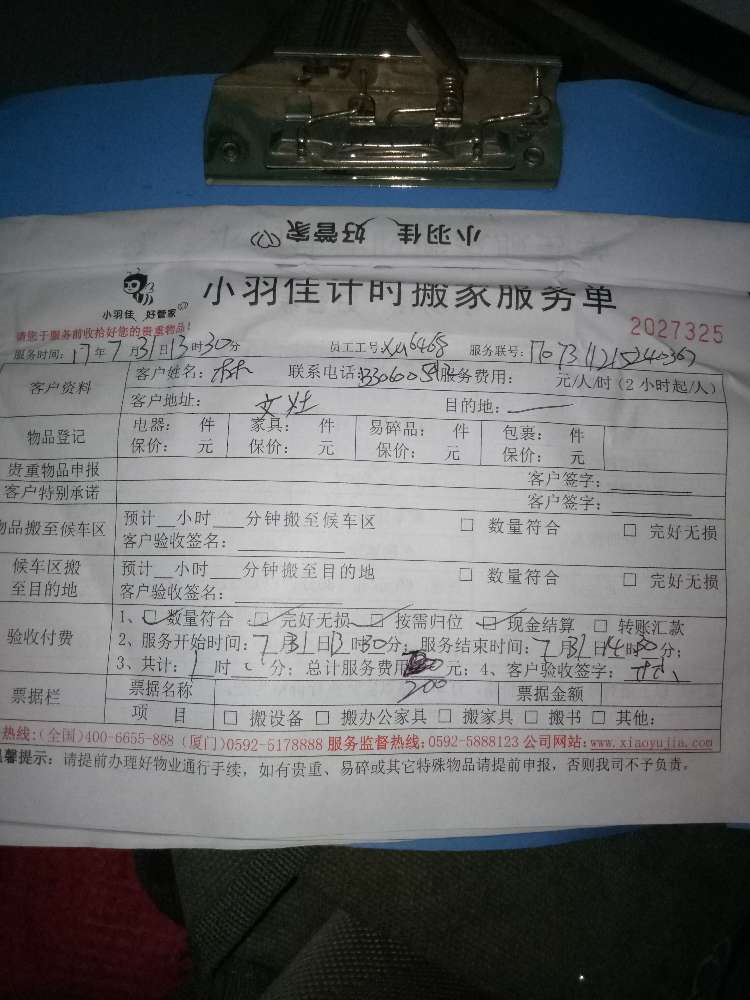 小羽佳 好管家
小羽佳 好管家
小羽佳计时搬家服务单
2027325
请您于服务前收拾好您的贵重物品!
服务时间: 17年7月31日13时30分 员工工号: 服务联号:
客户资料 客户姓名:林 联系电话: 服务费用: 元/人/时 (2小时起/人)
客户地址: 文灶 目的地:
物品登记 电器: 件 家具: 件 易碎品: 件 包裹: 件
保价: 元 保价: 元 保价: 元 保价: 元
贵重物品申报 客户签字:
客户特别承诺 客户签字:
物品搬至候车区 预计__小时___分钟搬至候车区 □ 数量符合 □ 完好无损
客户验收签名:
候车区搬至目的地 预计__小时___分钟搬至目的地 □ 数量符合 □ 完好无损
客户验收签名:
验收付费 1、□ 数量符合 □ 完好无损 □ 按需归位 □ 现金结算 □ 转账汇款
2、服务开始时间:7月31日13时30分; 服务结束时间:7月31日14时30分;
3、共计:1时0分; 总计服务费用200元; 4、客户验收签字:
票据栏 票据名称 票据金额
项 目 □ 搬设备 □ 搬办公家具 □ 搬家具 □ 搬书 □ 其他:
热线:(全国)400-6655-888 (厦门)0592-5178888 服务监督热线:0592-5888123 公司网站:www.xiaoyujia.com
温馨提示: 请提前办理好物业通行手续, 如有贵重、易碎或其它特殊物品请提前申报, 否则我司不予负责。